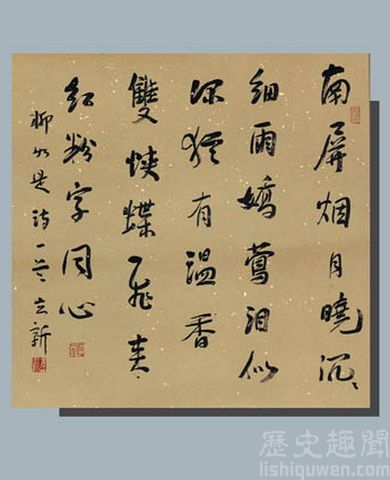 南屏烟月曉沉〻
細雨嬌鶯泪似
深猶有溫香
雙蛺蝶飛来
红粉字同心
柳如是詩一首 立新
歷史趣聞
lishiquwen.com